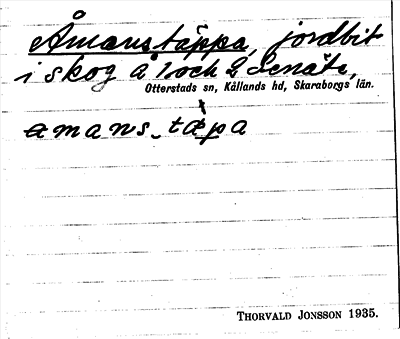 Åmanstäppa, jordbit
i skog å 1 och 2 Senäte,
Otterstads sn, Kållands hd, Skaraborgs län.
amans_täpa
THORVALD JONSSON 1935.